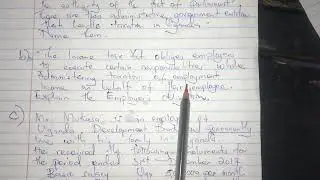 the authority of the Act of parliament,
there are two administrative government entities
that taxation in Uganda
Name them.
b) The income tax Act obliges employers
to execute certain responsibilities while
Administering taxation of employment
income on behalf of their employees.
Explain the Employer's obligations.
c) Mr. Mukasa is in employment of
Uganda Development Bank and currently
lives with his family in Uganda
he received the following emoluments for
the period ended 31st December 2017
Basic salary Ugx per month